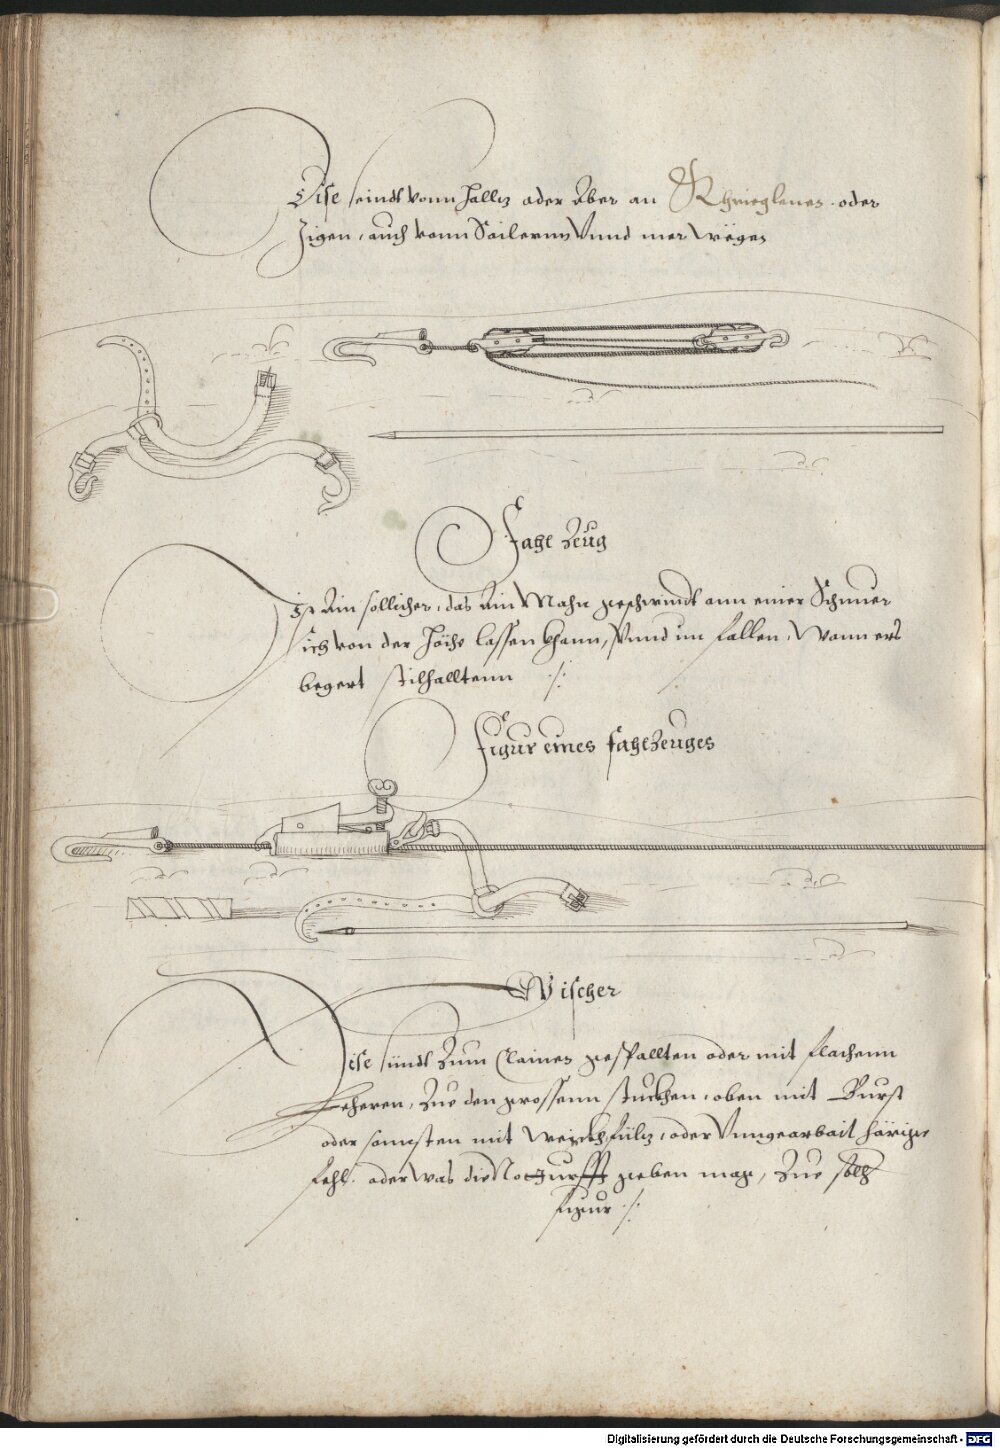 Dise seindt vonn Hollz oder Über an Khrieglenes oder
Zigen, auch vonn Sailernn Vnnd mer wegen
Fahl Zeug
Ist Ain sollicher, das Ain Mahn geschwindt ann einer Schnuer
sich von der Höche lassen khann, Vnnd im fallen, Wann ers
begert stilhalltenn ./.
Figur eines fahlzeuges
Wischer
Dise sündt Zum Clainen gespallten oder mit flachenn
Leheren, Zue den grossenn stuckhen, oben mit Burst
oder sonnsten mit weichfülz, oder Vnngearbait härige
fehl, oder was die Notturfft geben mag, Zue solch
figur ./.
Digitalisierung gefördert durch die Deutsche Forschungsgemeinschaft - DFG